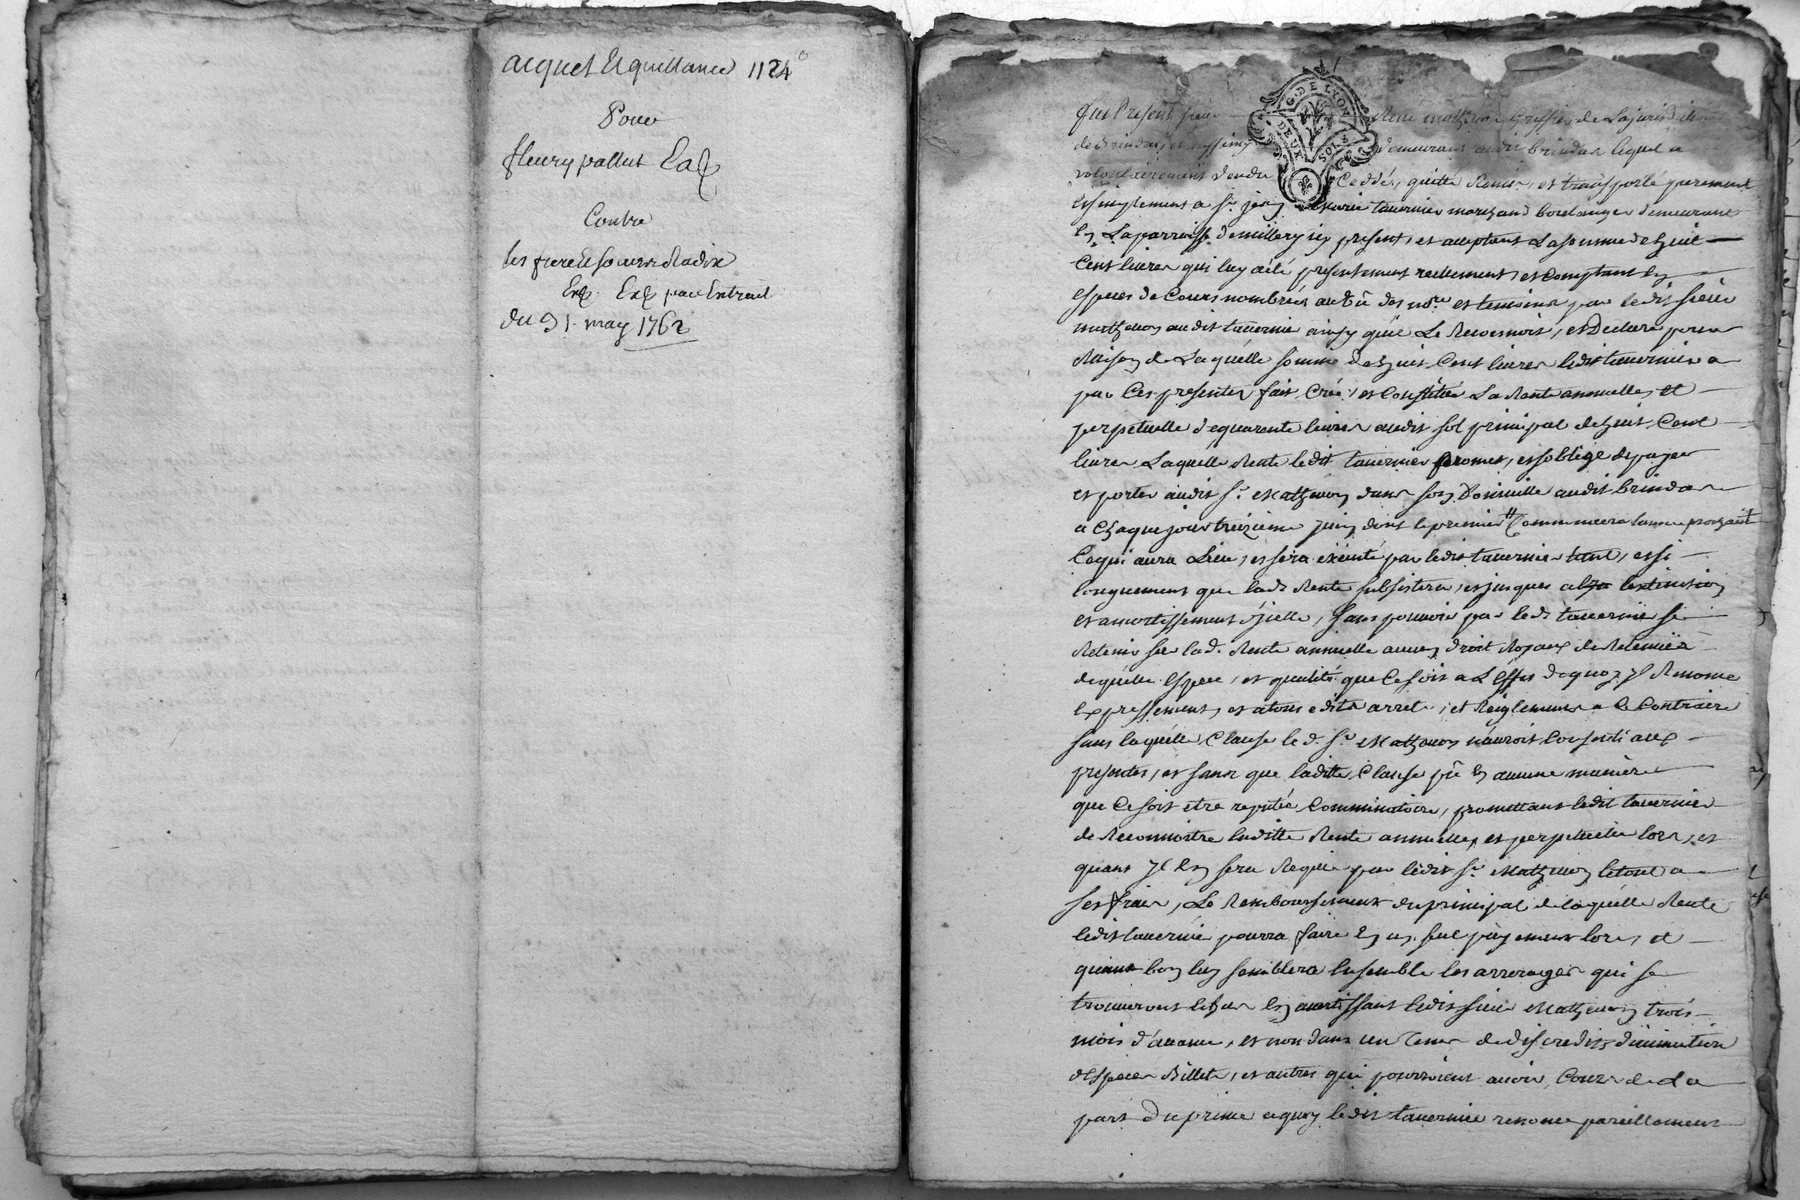 acquet Et quittance 1124
Pour
fleury pallut
Contre
les frere Et soeurs Radix
par Extrait
du 31 may 1762
G. DE LYON
DEUX SOLS
fut Present sieur René mathevon greffier de la jurisdiction
de Brindas et demeurant audit brindas lequel a
volontairement vendu Ceddé, quitté Remis, et transporté purement
Et simplement a Sr. jean Marie tavernier marchand boulanger demeurant
En La parroisse de millery icy present, et acceptant La somme de huit
Cent livres qui luy a été presentement reellement, et Comptant En
especes de Cours nombrées au vû des nore. et temoins par ledit sieur
mathevon audit tavernier ainsy qu'il Le Reconnoit, et Declare pour
Raison de Laquelle somme de huit Cent livres ledit tavernier a
par Ces presentes fait, Créé, et Constitué La Rente annuelle, et
perpetuelle de quarente livres audit sol principal de huit Cent
livres Laquelle Rente ledit tavernier promet, et s'oblige de payer
et porter audit Sr. Mathevon dans son Domicille audit brindas
a Chaque jour treizieme juin dont le premier Commencera l'année prochaine
Ce qui aura Lieu, et sera executé par ledit tavernier tant, et si
longuement que lad. Rente subsistera, et jusques a l'extinction
et amortissement d'icelle, sans pouvoir par led. tavernier se
Retenir sur lad. Rente annuelle aucun droit Royaux de Retenue
de quelle Espece, et qualité que Ce soit a L'Effet de quoy Jl Renonce
Expressement, et a tous edits arrets, et Reiglements a Ce Contraire
sans laquelle Clause led. Sr. Mathevon n'auroit Consenti aux
presentes, et sans que laditte Clause pû En aucune maniere
que Ce soit etre reputée Comminatoire, promettant ledit tavernier
de Reconnoitre laditte Rente annuelle, et perpetuelle lors, et
quant Jl En sera Requis par ledit Sr. Mathevon le tout a
ses frais, Le Remboursement du principal de laquelle Rente
ledit tavernier pourra faire En un seul payement lors, et
quant bon luy semblera Ensemble les arrerages qui se
trouveront Echus En avertissant ledit sieur Mathevon trois
mois d'avance, et non dans un Tems de discredit, diminution
d'Especes Billets, et autres qui pourroient avoir Cours de La
part Du prince a quoy ledit tavernier renonce pareillement